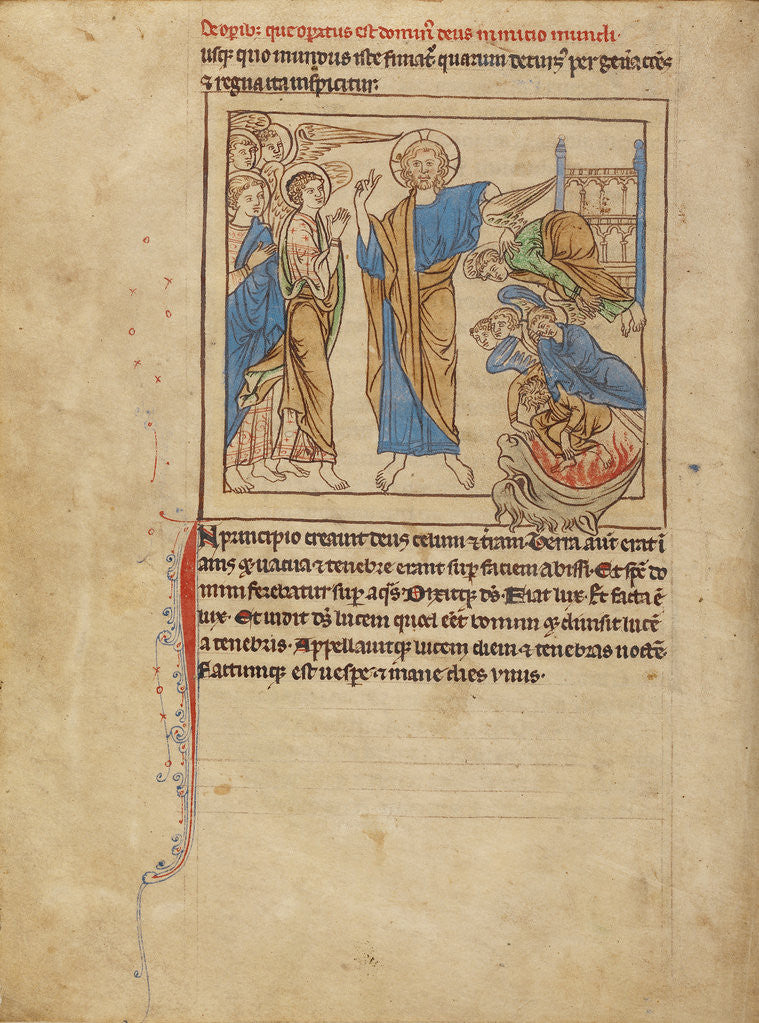 De operib; que operatus est dominus deus in inicio mundi.
usq; quo mundus iste finiat quarum per
& regna ita inspicitur.
IN principio creauit deus celum & t̄ram. Terra aut̄ erat i
anis q; uacua & tenebre erant sup̄ faciem abissi. Et sp̄c do
mini ferebatur sup̄ aq̄s. Dixitq; ds̄. Fiat lux. Et facta ē
lux. Et uidit ds̄ lucem quod eēt bonum q; diuisit lucē
a tenebris. Appellauitq; lucem diem. & tenebras noctē.
Factumq; est uespe & mane dies vnus.